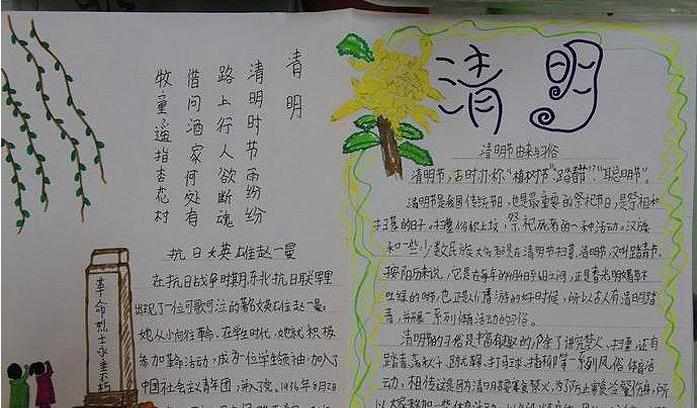 清明
清明时节雨纷纷
路上行人欲断魂
借问酒家何处有
牧童遥指杏花村
抗日英雄赵一曼
在抗日战争时期,东北抗日联军里
出现了一位可歌可泣的著名女英雄赵一曼。
她从小向往革命,在学生时代,她就积极
参加革命活动,成为一位学生领袖,加入了
中国社会主义青年团,
革命烈士永垂不朽
清明
清明节由来与习俗
清明节,古时亦称“植树节”、“踏青节”、“聪明节”。
清明是我国传统节日,也是最重要的祭祀节日,是祭祖和
扫墓的日子。扫墓俗称上坟,祭祀死者的一种活动。汉族
和一些少数民族大多都是在清明节扫墓。清明节,又叫踏青节,
按阳历来说,它是在每年的4月4日至6日之间,正是春光明媚草木
吐绿的时节,也正是人们春游的好时候,所以古人有清明踏
青,并开展一系列体育活动的习俗。
清明节的习俗是丰富有趣的,除了讲究禁火、扫墓,还有
踏青、荡秋千、踢蹴鞠、打马球、插柳等一系列风俗体育活
动,相传这是因为清明节要寒食禁火,为了防止寒食冷餐伤身,所
以大家参加一些体育活动